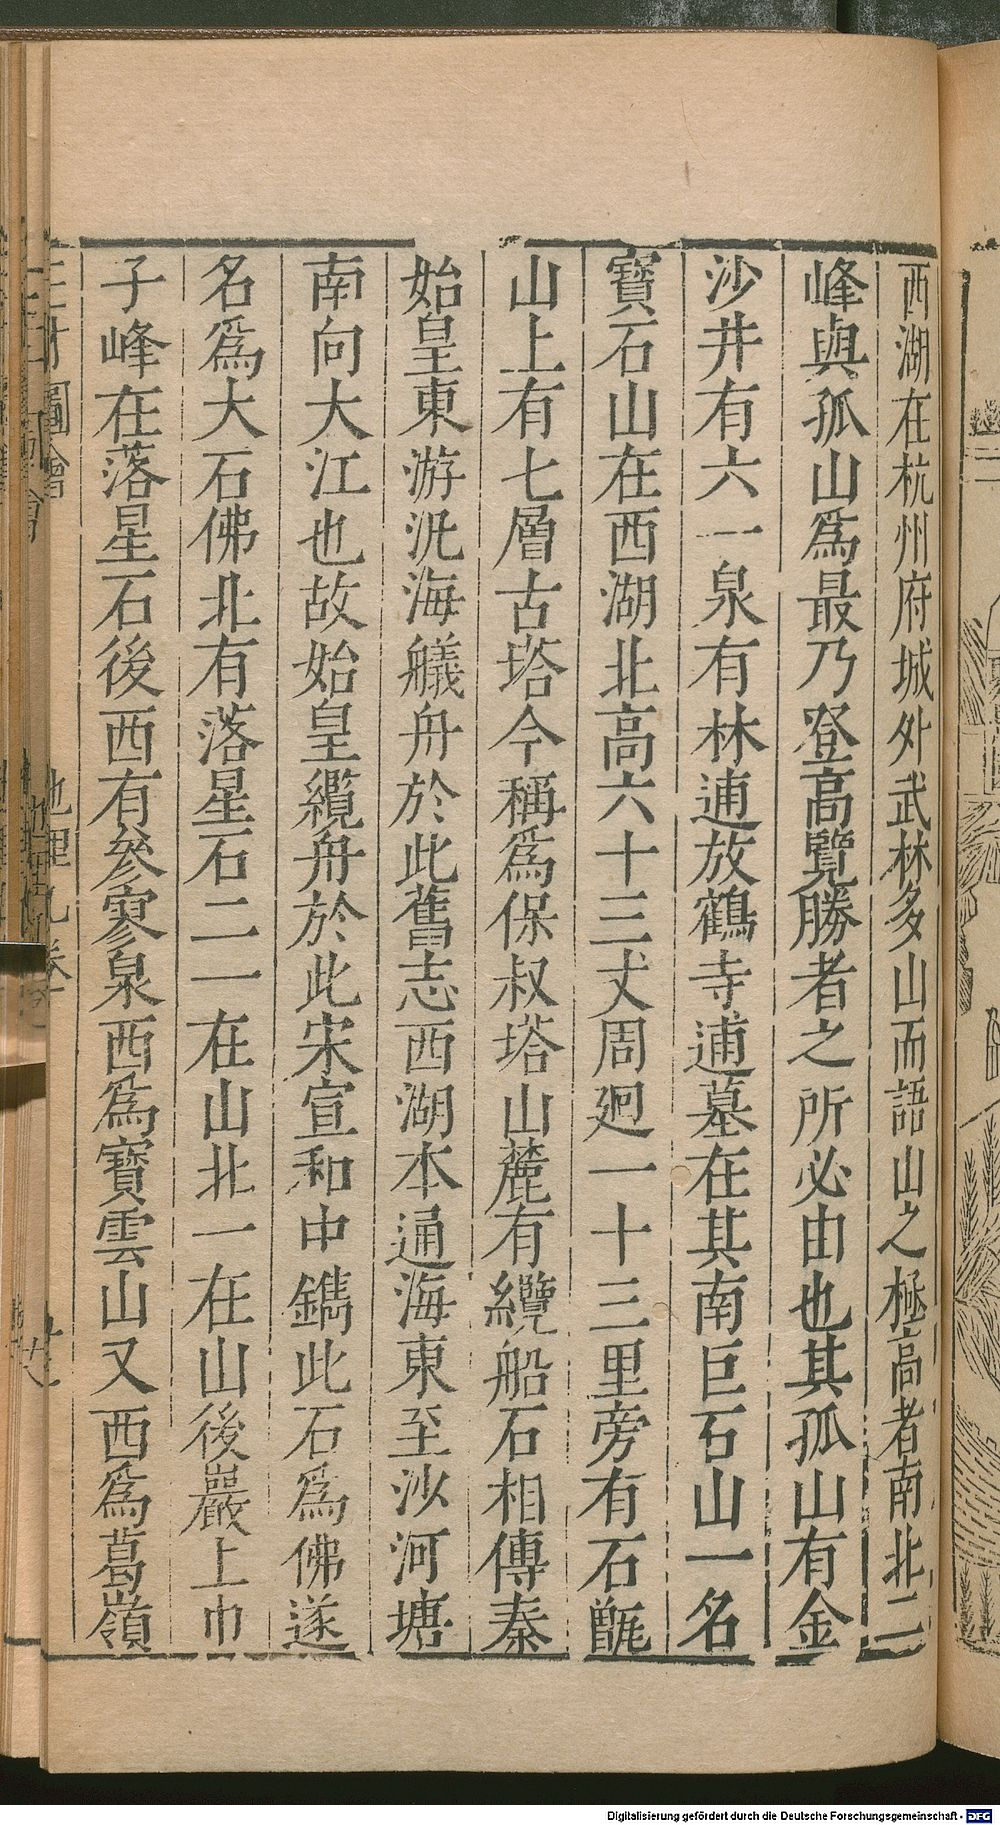 西湖在杭州府城外武林多山而語山之極高者南北二
峰與孤山爲最乃登高覽勝者之所必由也其孤山有金
沙井有六一泉有林逋放鶴寺逋墓在其南巨石山一名
寶石山在西湖北高六十三丈周廻一十三里旁有石甑
山上有七層古塔今稱爲保叔塔山麓有纜船石相傳秦
始皇東游汎海艤舟於此舊志西湖本通海東至沙河塘
南向大江也故始皇纜舟於此宋宣和中鐫此石爲佛遂
名爲大石佛北有落星石二一在山北一在山後巖上巾
子峰在落星石後西有參寥泉西爲寶雲山又西爲葛嶺
圖會
地理九卷
Digitalisierung gefördert durch die Deutsche Forschungsgemeinschaft - DFG